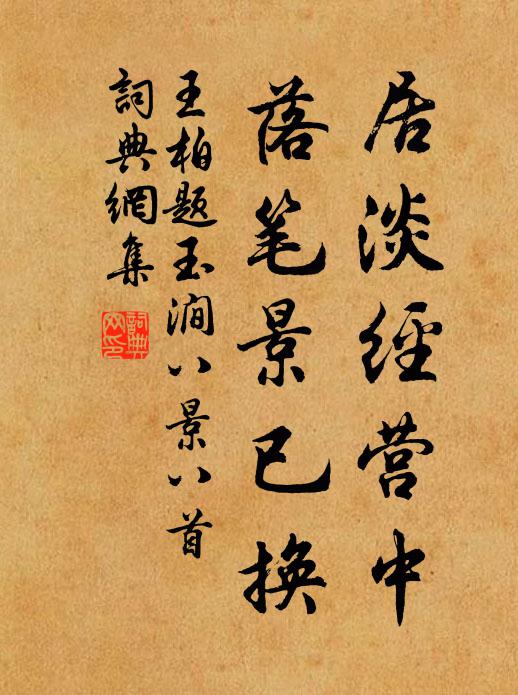 居淡經营中
落笔景已换
王柏题玉澗八景八首
詞典網集
詞典網印